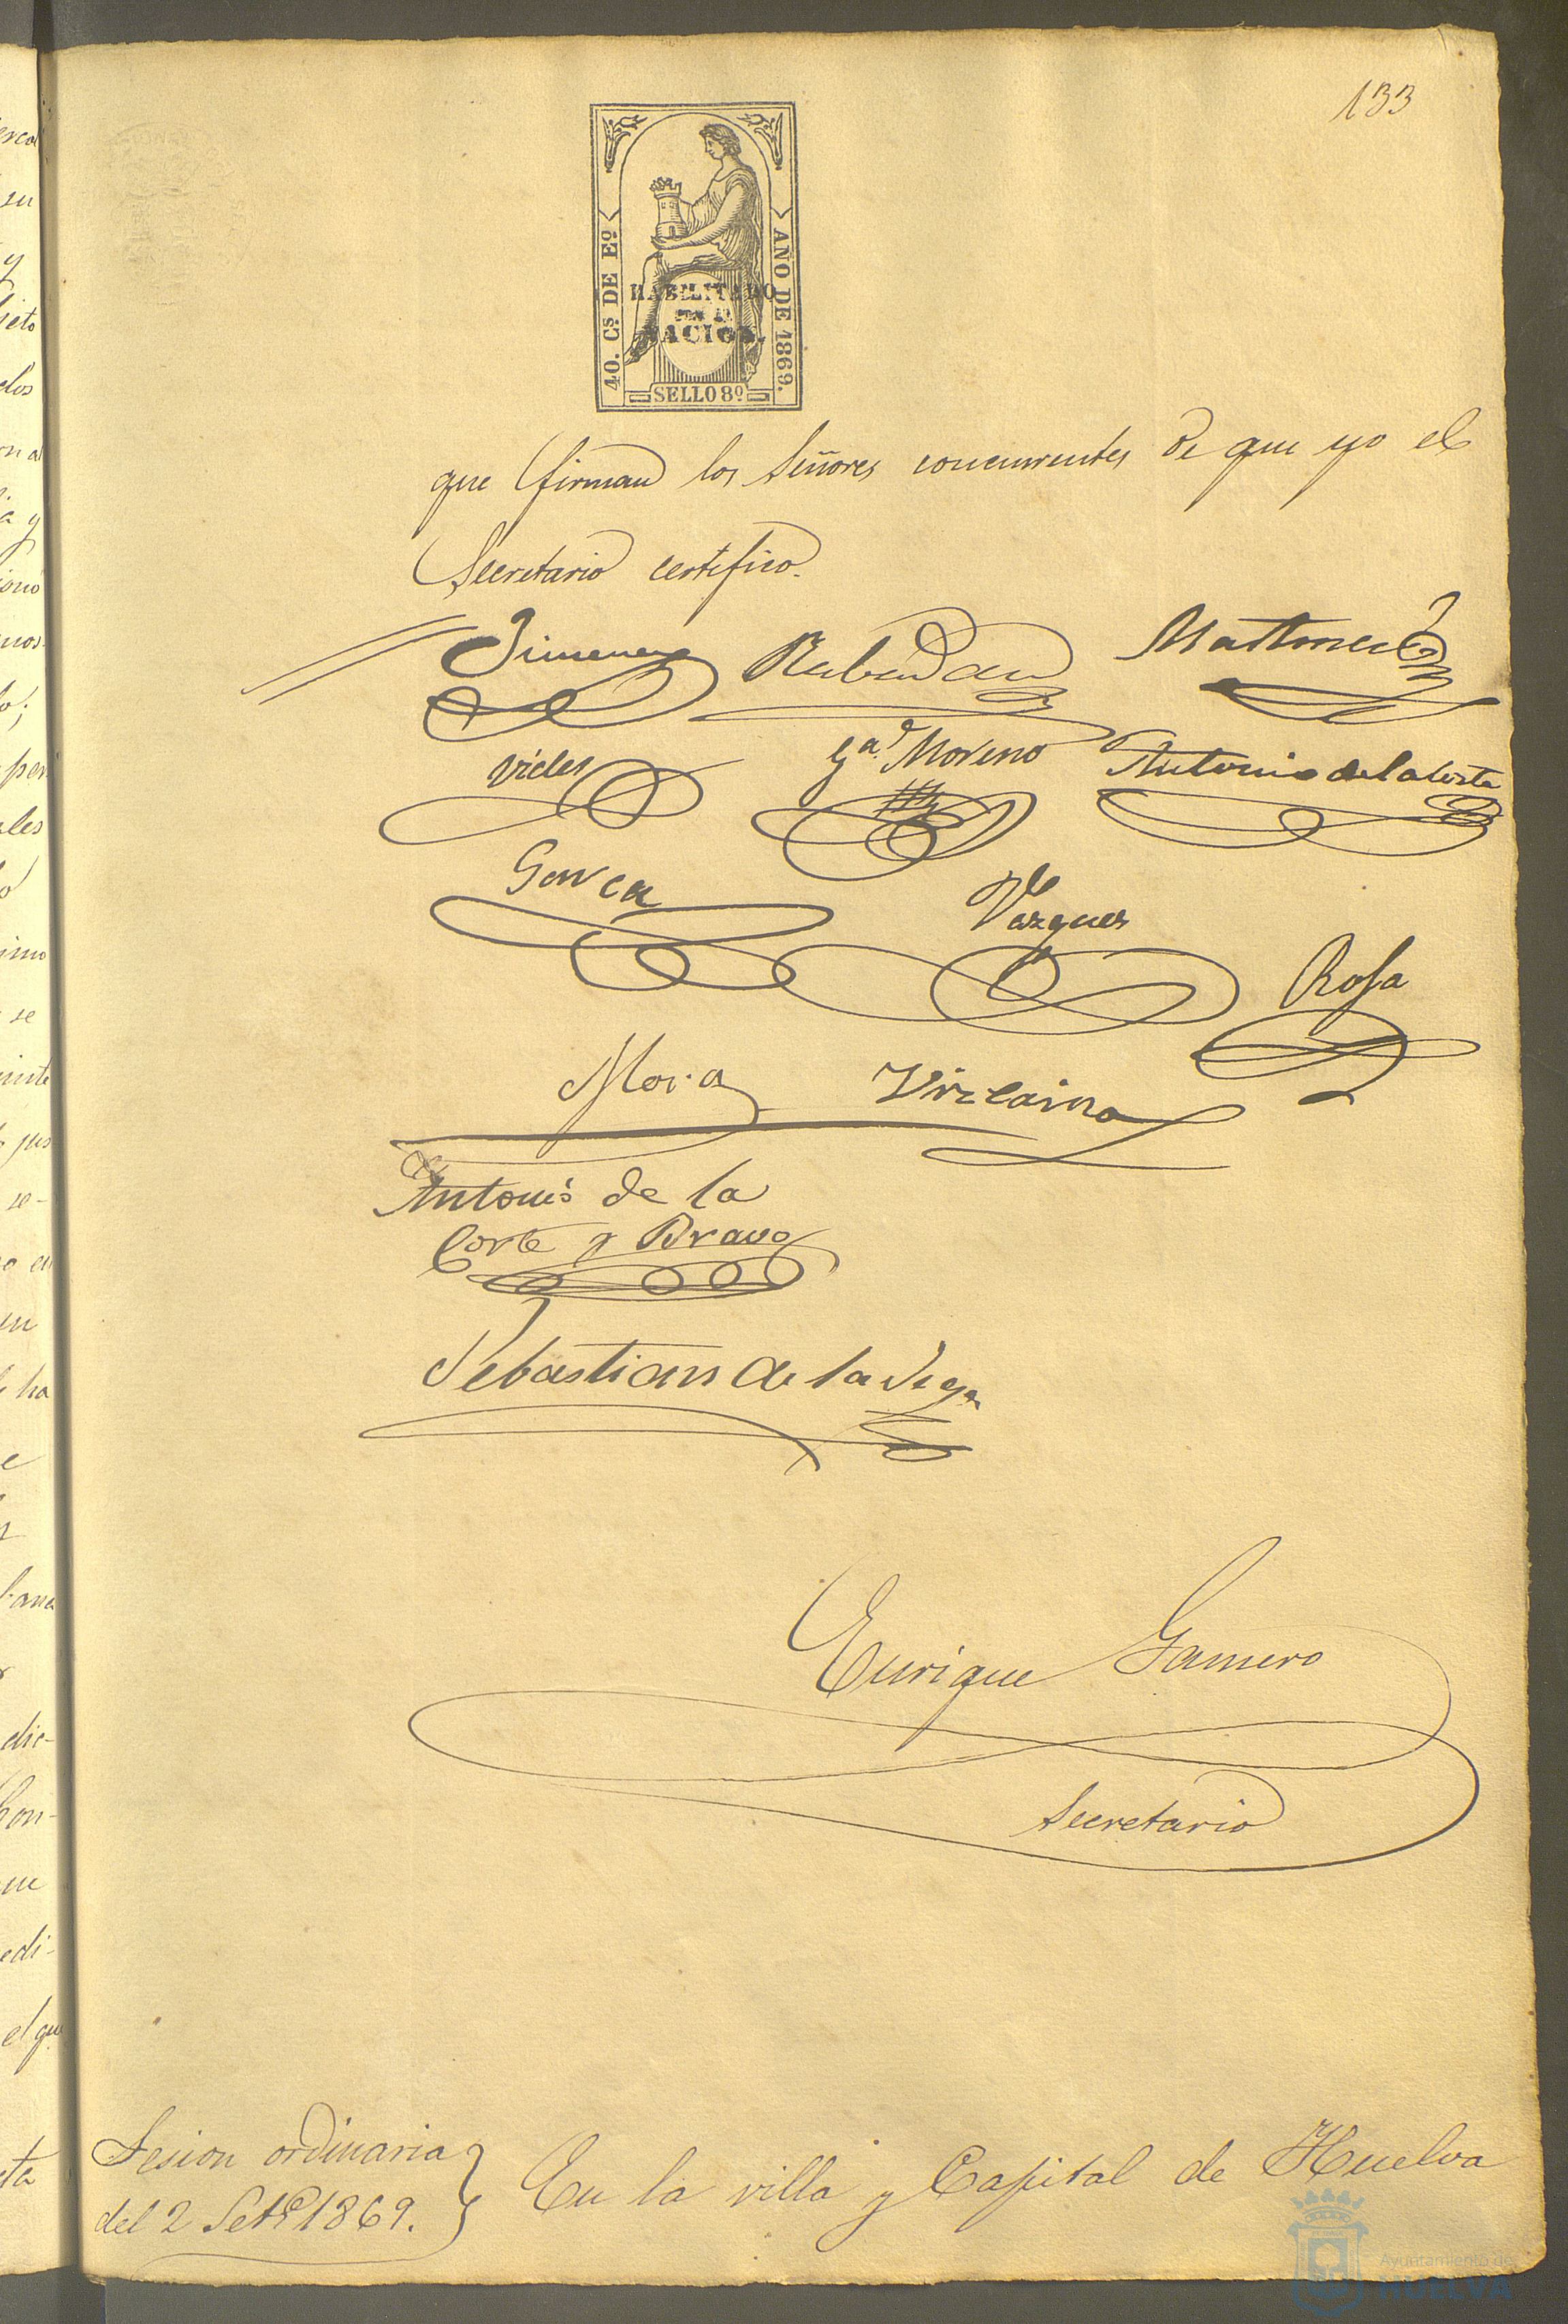 133
40. Cs DE Eº
AÑO DE 1869.
HABILITADO
POR LA
NACION.
SELLO 8º
que firman los Señores concurrentes de que yo el
Secretario certifico.
Jimenez Rabadan
Vides Gª Moreno Antonio de la Corte
Garcia Vazques
Rosa
Mora Vizcaino
Antonio de la
Corte y Bravo
Sebastian de la Vega
Enrique Gamero
Secretario
Sesion ordinaria
del 2 Setre 1869.
En la villa y Capital de Huelva
Ayuntamiento de
HUELVA